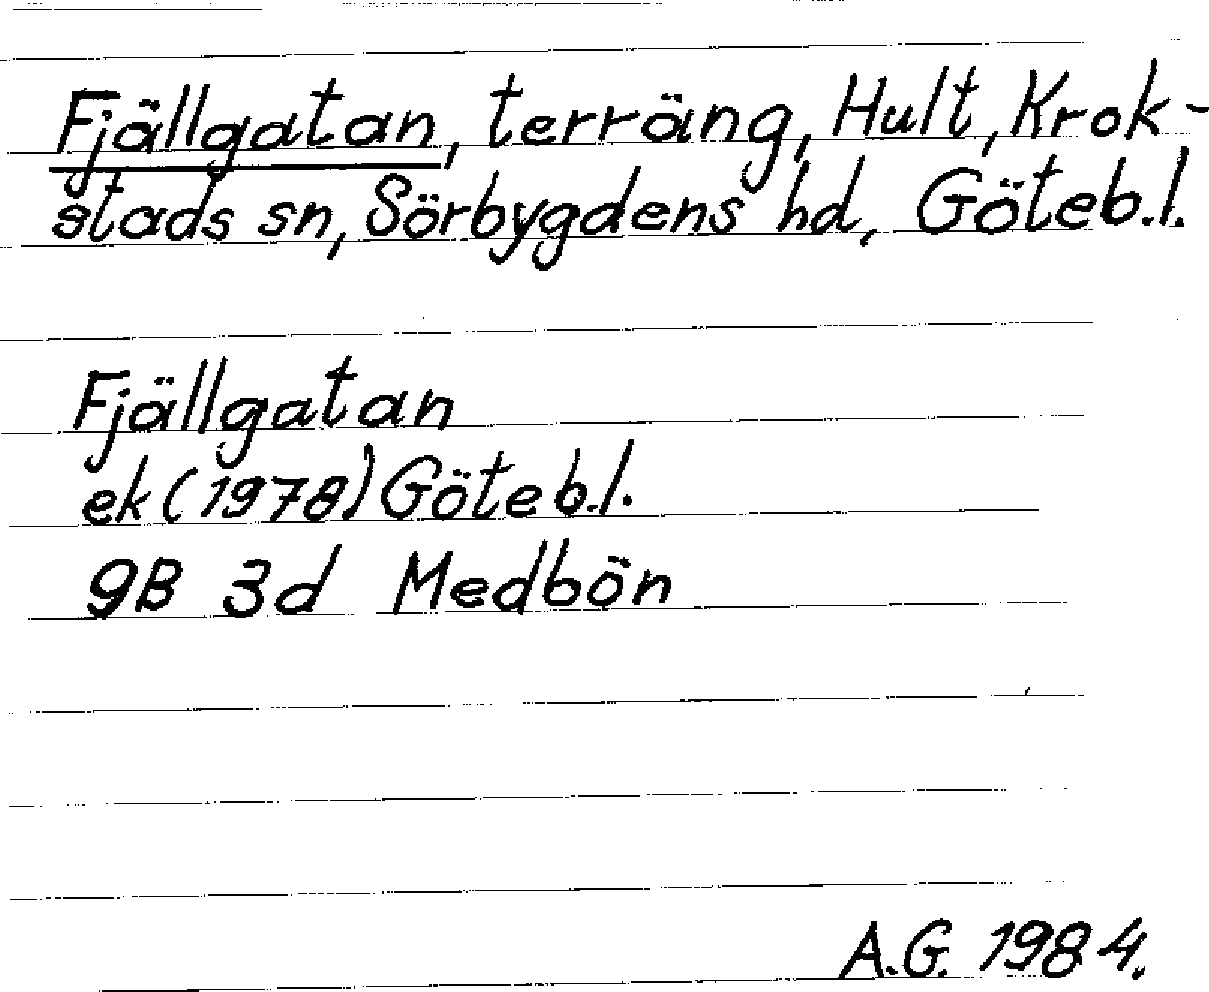 Fjällgatan, terräng, Hult, Krok-
stads sn, Sörbygdens hd, Göteb.l.
Fjällgatan
ek (1978) Göteb.l.
9B 3d Medbön
A.G. 1984.